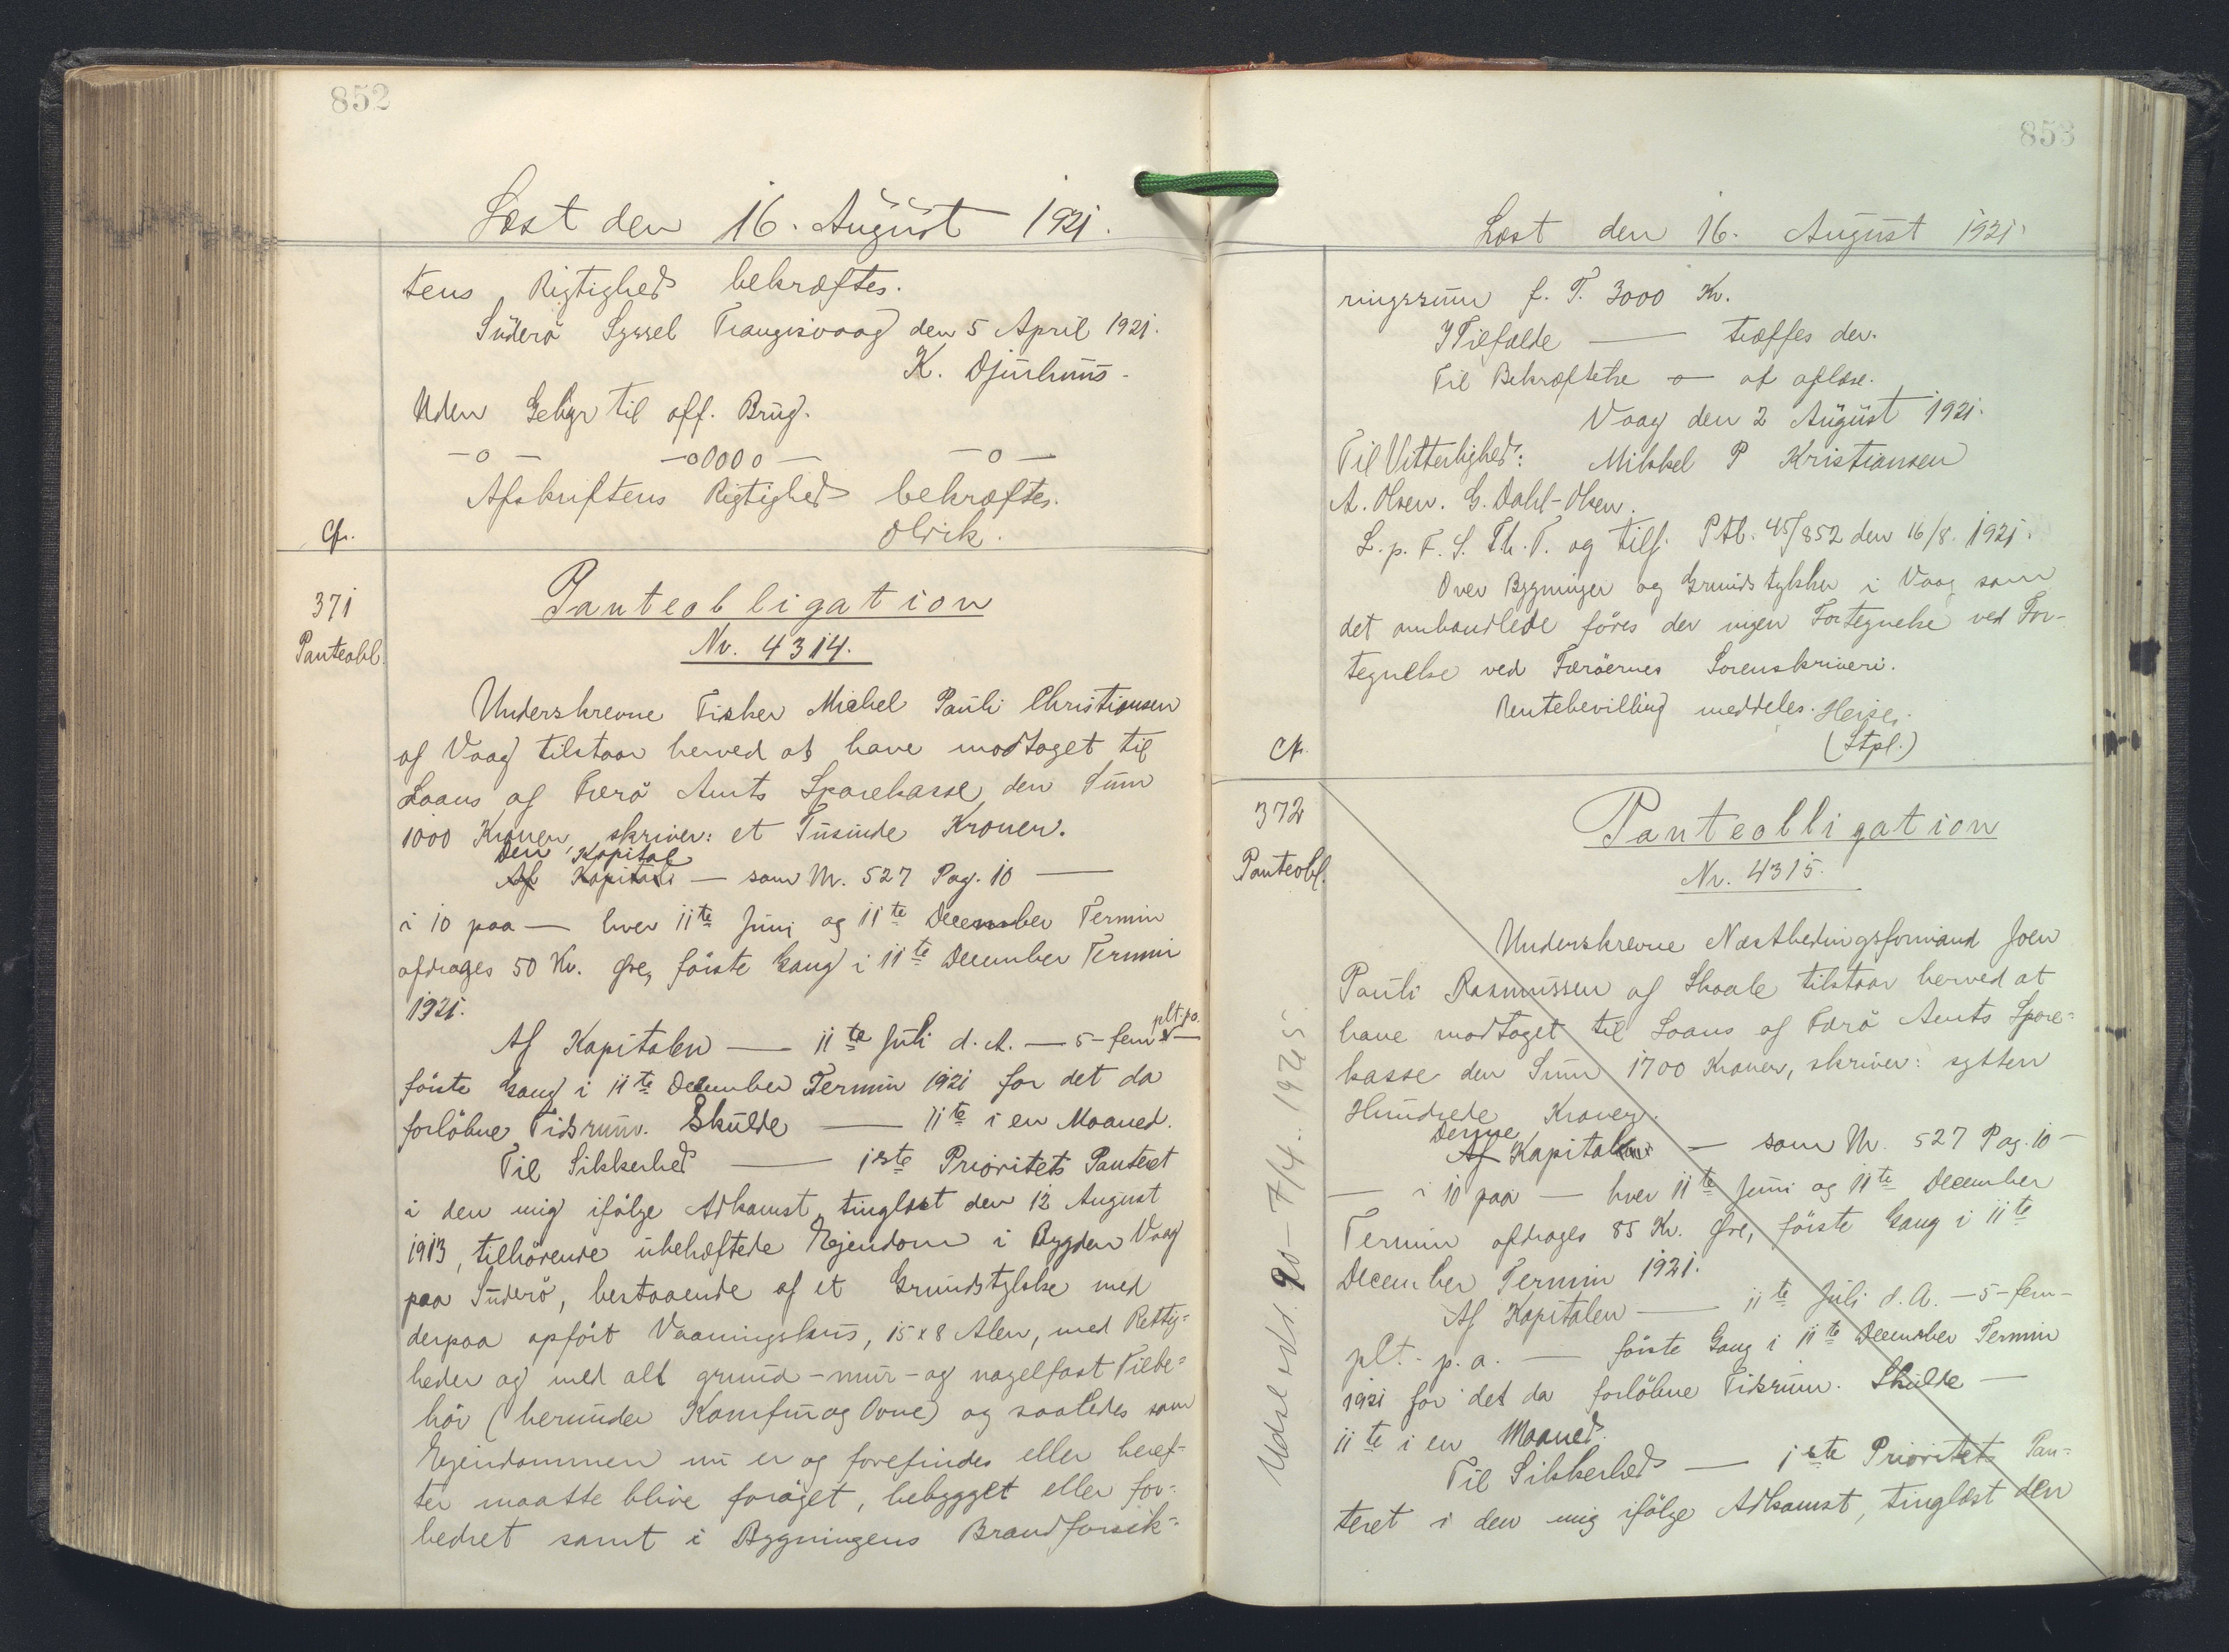 852
Læst den 16. August 1921.
tens Rigtighed bekræftes.
Süderö Syssel Trangisvaag den 5 April 1921.
K. Djurhuus.
Uden Gebyr til off. Brug.
—o— —o0000— —o—
Afskriftens Rigtighed bekræftes.
Cfr. Olrik.
371
Panteobl.
Panteobligation
Nr. 4314.
Underskrevne Fisker Michel Pauli Christiansen
af Vaag tilstaar herved at have modtaget til
Laans af Færö Amts Sparekasse den Sum
1000 Kroner, skriver: et Tusinde Kroner.
Den Kapital
Af Kapitalen — som Nr. 527 Pag. 10 —
i 10 paa — hver 11te Juni og 11te December Termin
afdrages 50 Kr. Øre, förste Gang i 11te December Termin
1921.
Af Kapitalen — 11te Juli d. A. — 5 - fem plt. p.a. —
förste Gang i 11te December Termin 1921 for det da
forlöbne Tidsrum. Skulde — 11te i en Maaned.
Til Sikkerhed — 1ste Prioritets Panteret
i den mig ifölge Adkomst, tinglæst den 12 August
1913, tilhörende ubehæftede Ejendom i Bygden Vaag
paa Suderö, bestaaende af et Grundstykke med
derpaa opfört Vaaningshus, 15 x 8 Alen, med Rettig=
heder og med alt grund - mur - og nagelfast Tilbe=
hör (herunder Komfur og Ovne) og saaledes som
Ejendommen nu er og forefindes eller heref=
ter maatte blive foröget, bebygget eller for=
bedret samt i Bygningens Brandforsik=
853
Læst den 16. August 1921.
ringssum f. T. 3000 Kr.
I Tilfælde — træffes der.
Til Bekræftelse — o — af aflæse.
Vaag den 2 August 1921.
Til Vitterlighed: Mikkel P Kristiansen
A. Olsen. G. Dahl-Olsen.
L. p. F. S. Th. T. og tilf. Ptb. 45/852 den 16/8. 1921.
Over Bygninger og Grundstykker i Vaag som
det omhandlede föres der ingen Fortegnelse ved For-
tegnelse ved Færöernes Sorenskriveri.
Rentebevilling meddeles. Heise.
(Stpl.)
Cfr.
372
Panteobl.
Panteobligation
Nr. 4315.
Underskrevne Næstbedingsformand Joen
Pauli Rasmussen af Skaale tilstaar herved at
have modtaget til Laans af Færö Amts Spare=
kasse den Sum 1700 Kroner, skriver: sytten
Hundrede Kroner.
Denne
Af Kapitalen — som Nr. 527 Pag. 10 —
— i 10 paa — hver 11te Juni og 11te December
Termin afdrages 85 Kr. Øre, förste Gang i 11te
December Termin 1921.
Af Kapitalen — 11te Juli d. A. — 5 - fem -
plt. - p. a. — förste Gang i 11te December Termin
1921 for det da forlöbne Tidsrum. Skulde —
11te i en Maaned.
Til Sikkerhed — 1ste Prioritets Pan=
teret i den mig ifölge Adkomst, tinglæst den
Udsl. 90 - 7/4. 1925.